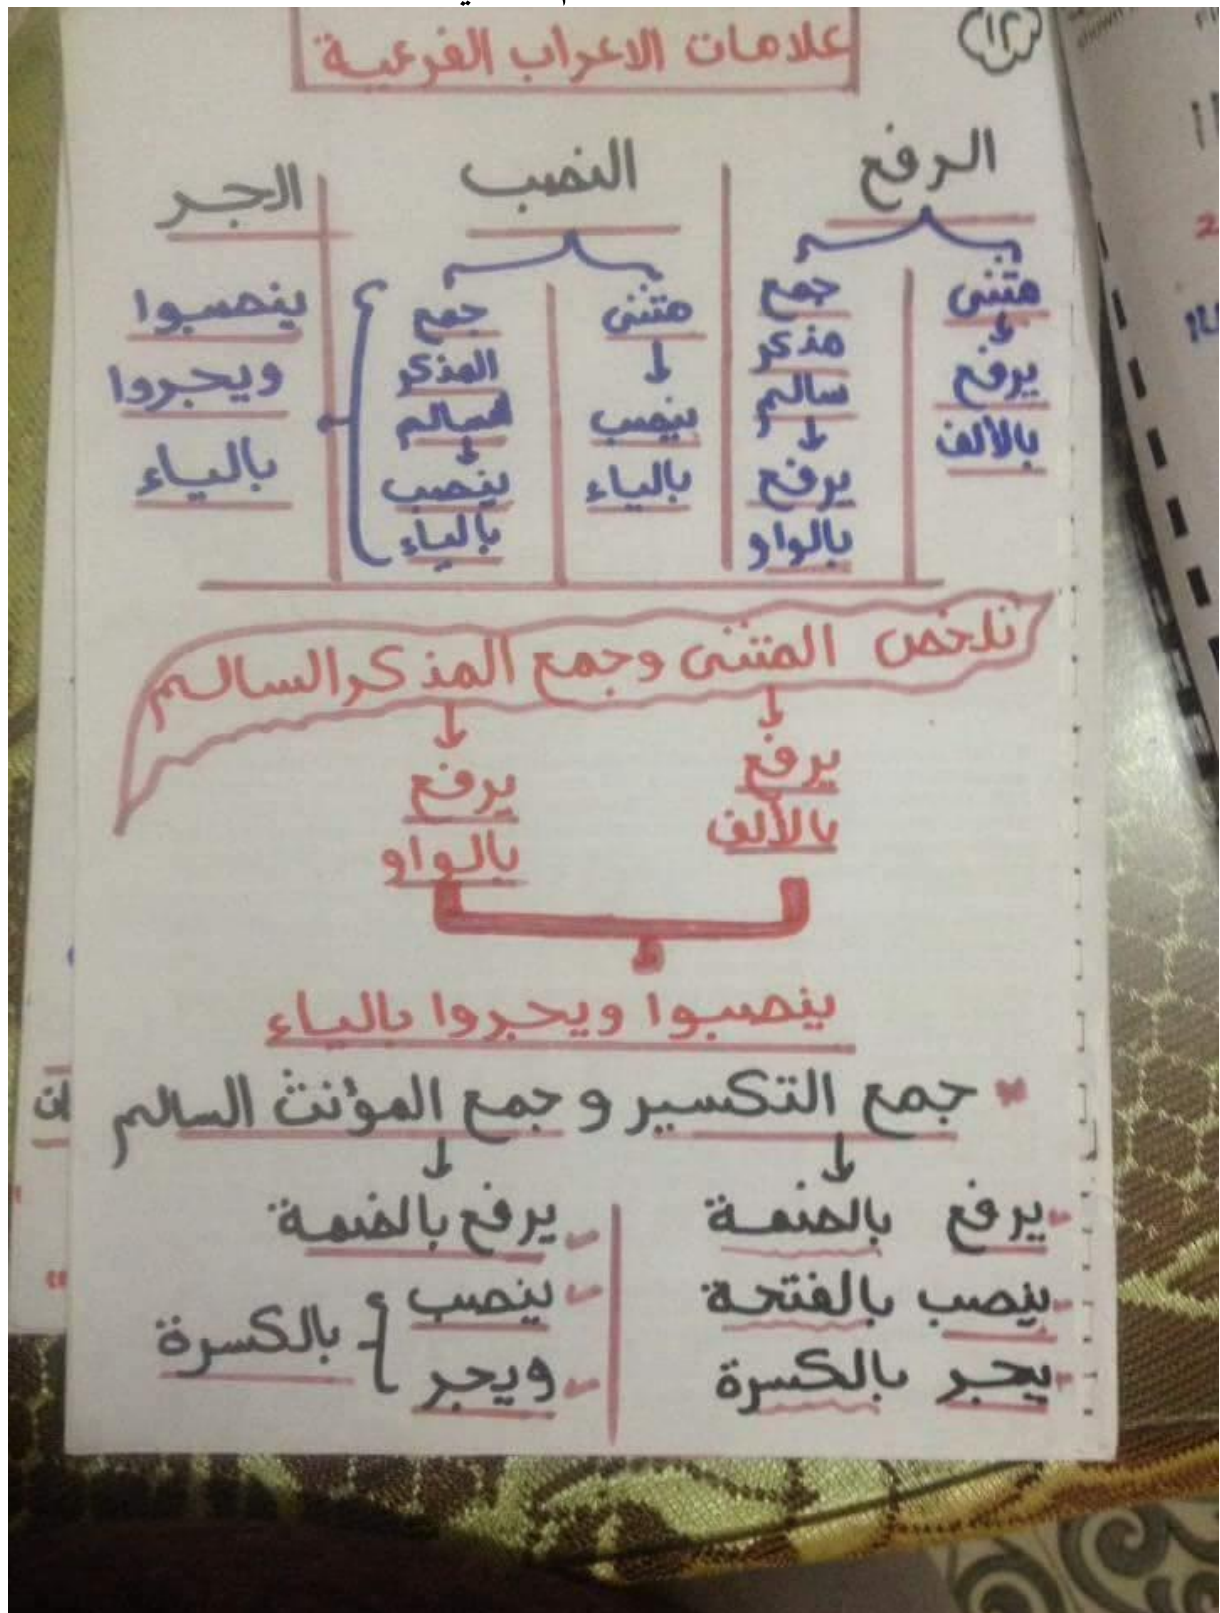 ١٢
علامات الاعراب الفرعية
الرفع
النصب
الجر
مثنى
يرفع
بالألف
جمع
مذكر
سالم
يرفع
بالواو
مثنى
ينصب
بالياء
جمع
المذكر
السالم
ينصب
بالياء
ينصبوا
ويجروا
بالياء
نلخص المثنى وجمع المذكر السالم
يرفع
بالألف
يرفع
بالواو
ينصبوا ويجروا بالياء
* جمع التكسير و جمع المؤنث السالم
- يرفع بالضمة
- ينصب بالفتحة
- يجر بالكسرة
- يرفع بالضمة
- ينصب
- ويجر
بالكسرة